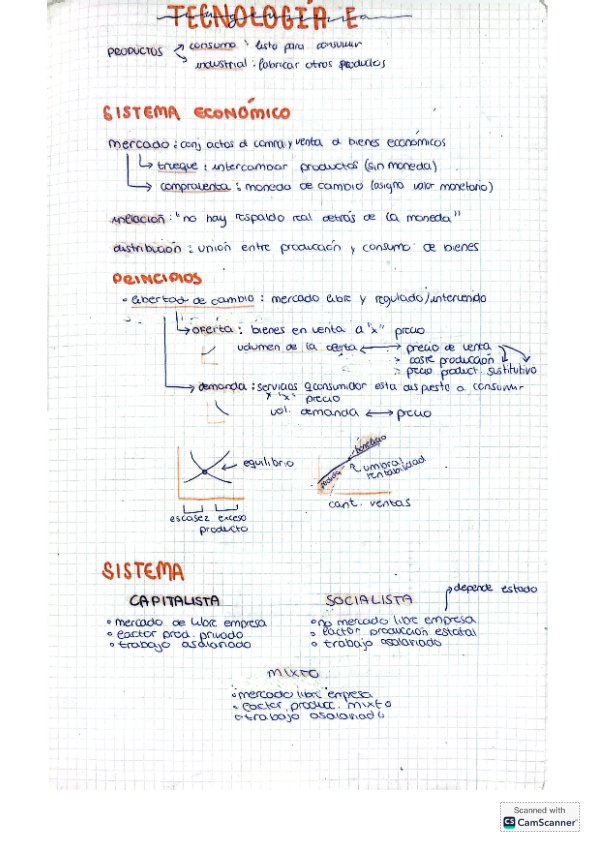 TECNOLOGÍA E
PRODUCTOS consumo : listo para consumir
industrial : fabricar otros productos
SISTEMA ECONÓMICO
mercado : conj actos d compra y venta d bienes económicos
trueque : intercambiar productos (sin moneda)
compraventa : moneda de cambio (asigna valor monetario)
inflación : "no hay respaldo real detrás de la moneda"
distribución : unión entre producción y consumo de bienes
PRINCIPIOS
• libertad de cambio : mercado libre y regulado/intervenido
oferta : bienes en venta a "x" precio
volumen de la oferta precio de venta
coste producción
precio product. sustitutivo
demanda : servicios q consumidor esta dispuesto a consumir
x "x" precio
vol. demanda precio
equilibrio
escasez exceso
producto
beneficio
pérdida
umbral
rentabilidad
cant. ventas
SISTEMA
CAPITALISTA
• mercado de libre empresa
• factor prod. privado
• trabajo asalariado
SOCIALISTA
depende estado
• no mercado libre empresa
• factor producción estatal
• trabajo asalariado
MIXTO
• mercado libre empesa
• factor produc. mixto
• trabajo asalariado
Scanned with
CS CamScanner